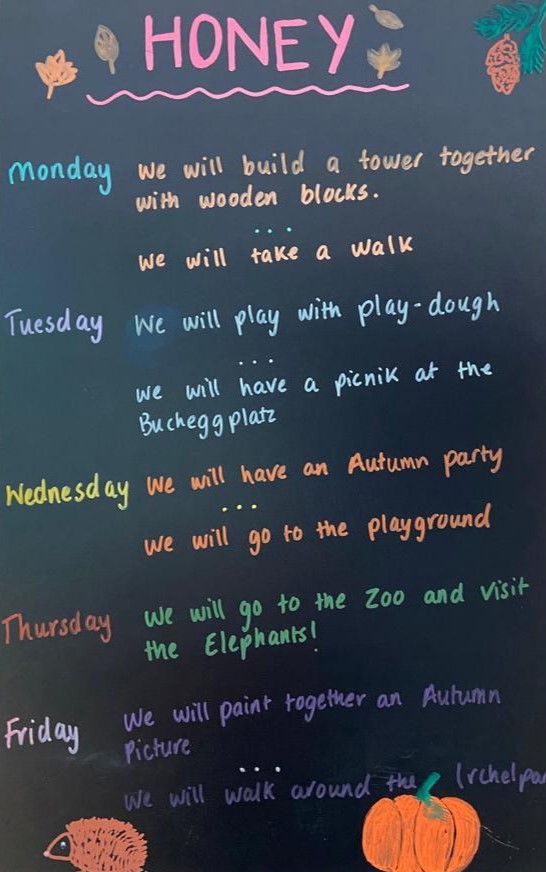 HONEY
Monday We will build a tower together
with wooden blocks.
...
We will take a walk
Tuesday We will play with play-dough
...
we will have a picnik at the
Bucheggplatz
Wednesday We will have an Autumn party
...
We will go to the playground
Thursday We will go to the Zoo and visit
the Elephants!
Friday We will paint together an Autumn
Picture
...
We will walk around the